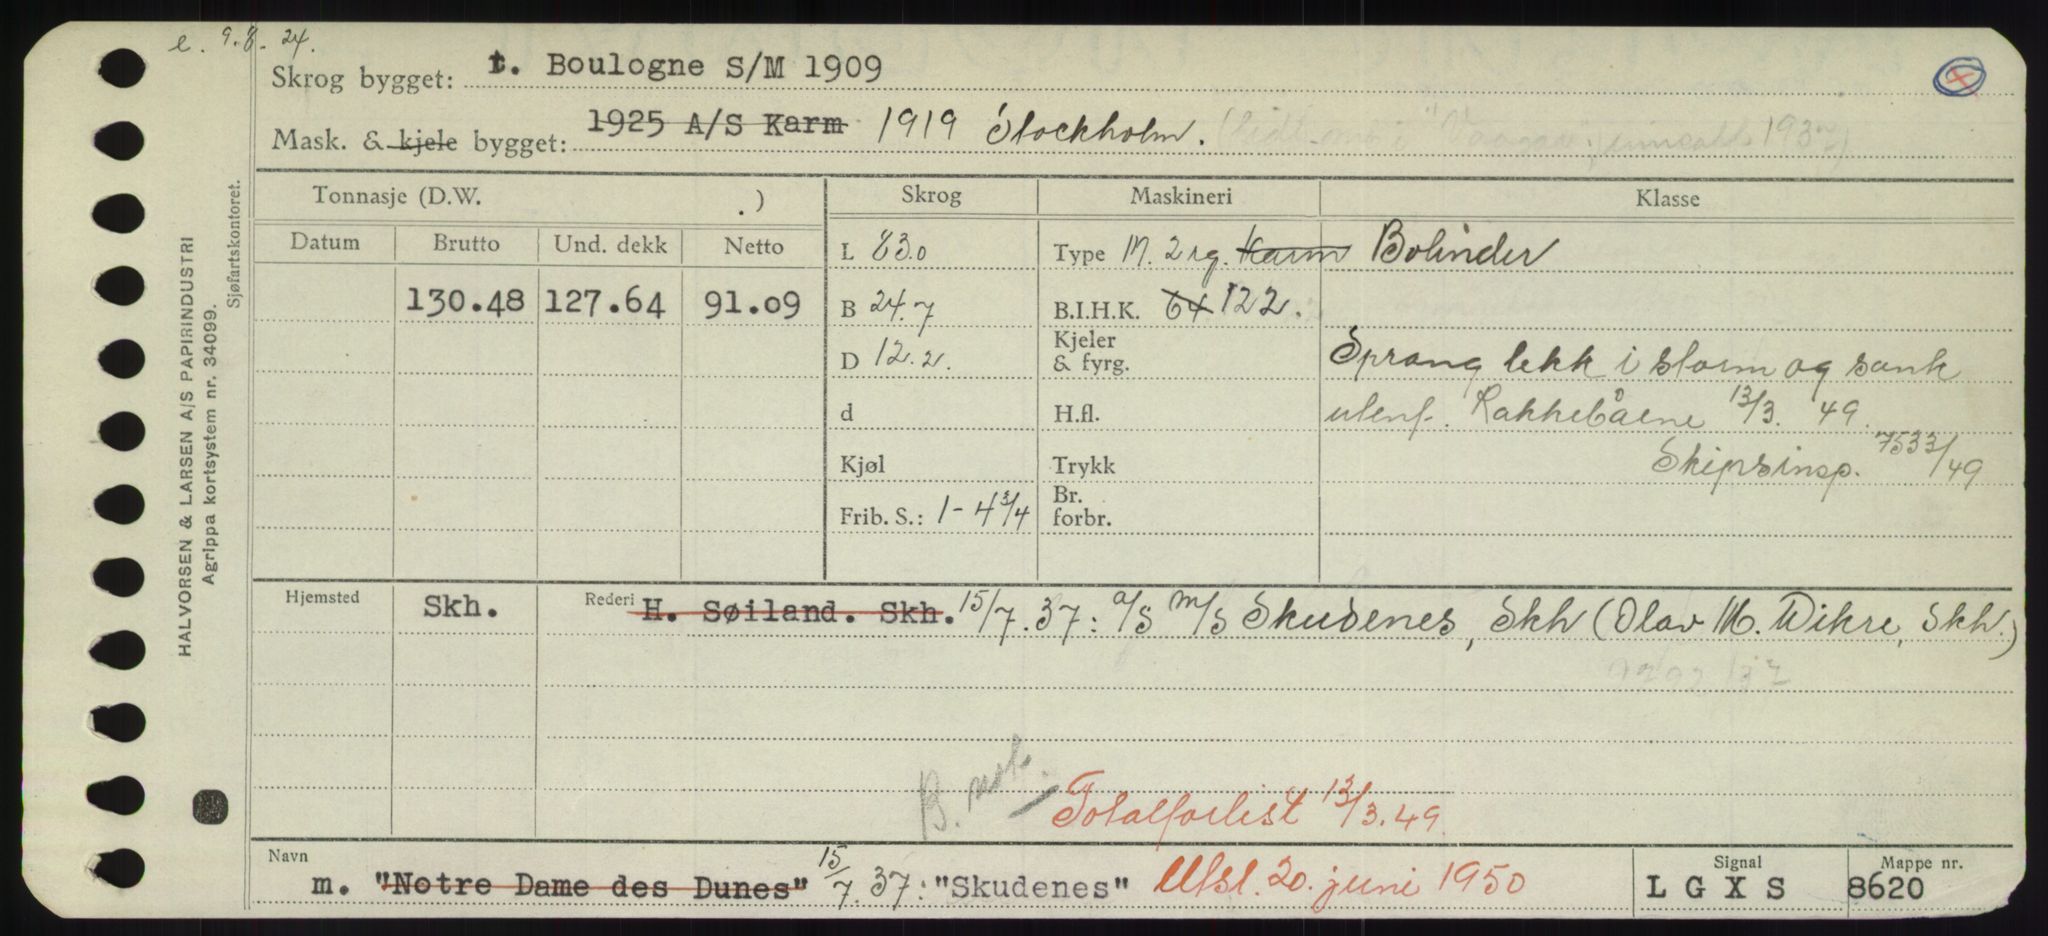 e. 9.8.24.
Skrog bygget: t. Boulogne S/M 1909
Mask. & kjele bygget: 1925 A/S Karm 1919 Stockholm.
Tonnasje (D.W. .)
Skrog
Maskineri
Klasse
Datum
Brutto
Und. dekk
Netto
L 83.0
Type M. 2 sg. Karm Bolinder
130.48
127.64
91.09
B 24.7
B.I.H.K. 64 122.
D 12.2.
Kjeler & fyrg.
Sprang lekk i storm og sank
d
H.fl.
utenf. Rakkebåene 13/3. 49.
Kjøl
Trykk
Skipsinsp. 7533/49
Frib. S.: 1-4 3/4
Br. forbr.
Hjemsted
Skh.
Rederi H. Søiland. Skh. 15/7.37: A/S M/S Skudenes, Skh (Olav M. Wikre, Skh.)
B. not.
Totalforlist 13/3.49.
Navn
m. "Notre Dame des Dunes" 15/7.37: "Skudenes" Utsl. 20. juni 1950
Signal
L G X S
Mappe nr.
8620
HALVORSEN & LARSEN A/S PAPIRINDUSTRI
Agrippa kortsystem nr. 34099.
Sjøfartskontoret.